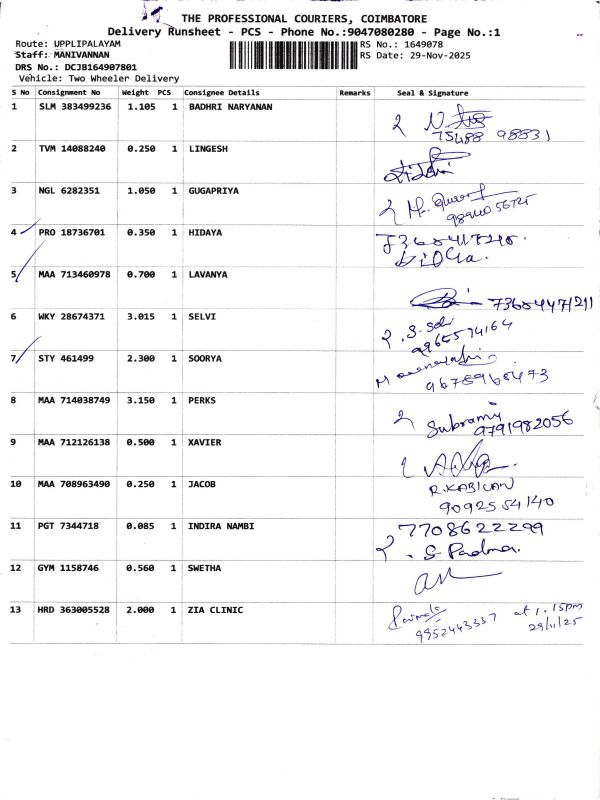 THE PROFESSIONAL COURIERS, COIMBATORE
Delivery Runsheet - PCS - Phone No.:9047080280 - Page No.:1
Route: UPPLIPALAYAM RS No.: 1649078
Staff: MANIVANNAN RS Date: 29-Nov-2025
DRS No.: DCJB164907801
Vehicle: Two Wheeler Delivery
S No Consignment No Weight PCS Consignee Details Remarks Seal & Signature
1 SLM 383499236 1.105 1 BADHRI NARYANAN
75488 98831
2 TVM 14088240 0.250 1 LINGESH
3 NGL 6282351 1.050 1 GUGAPRIYA
4 PRO 18736701 0.350 1 HIDAYA
5 MAA 713460978 0.700 1 LAVANYA
6 WKY 28674371 3.015 1 SELVI
7 STY 461499 2.300 1 SOORYA
8 MAA 714038749 3.150 1 PERKS
Subrami
9791982056
9 MAA 712126138 0.500 1 XAVIER
10 MAA 708963490 0.250 1 JACOB
R.KABILAN
9092554140
11 PGT 7344718 0.085 1 INDIRA NAMBI
7708622299
S Padma.
12 GYM 1158746 0.560 1 SWETHA
13 HRD 363005528 2.000 1 ZIA CLINIC
at 1.15pm
9952443337 29/11/25